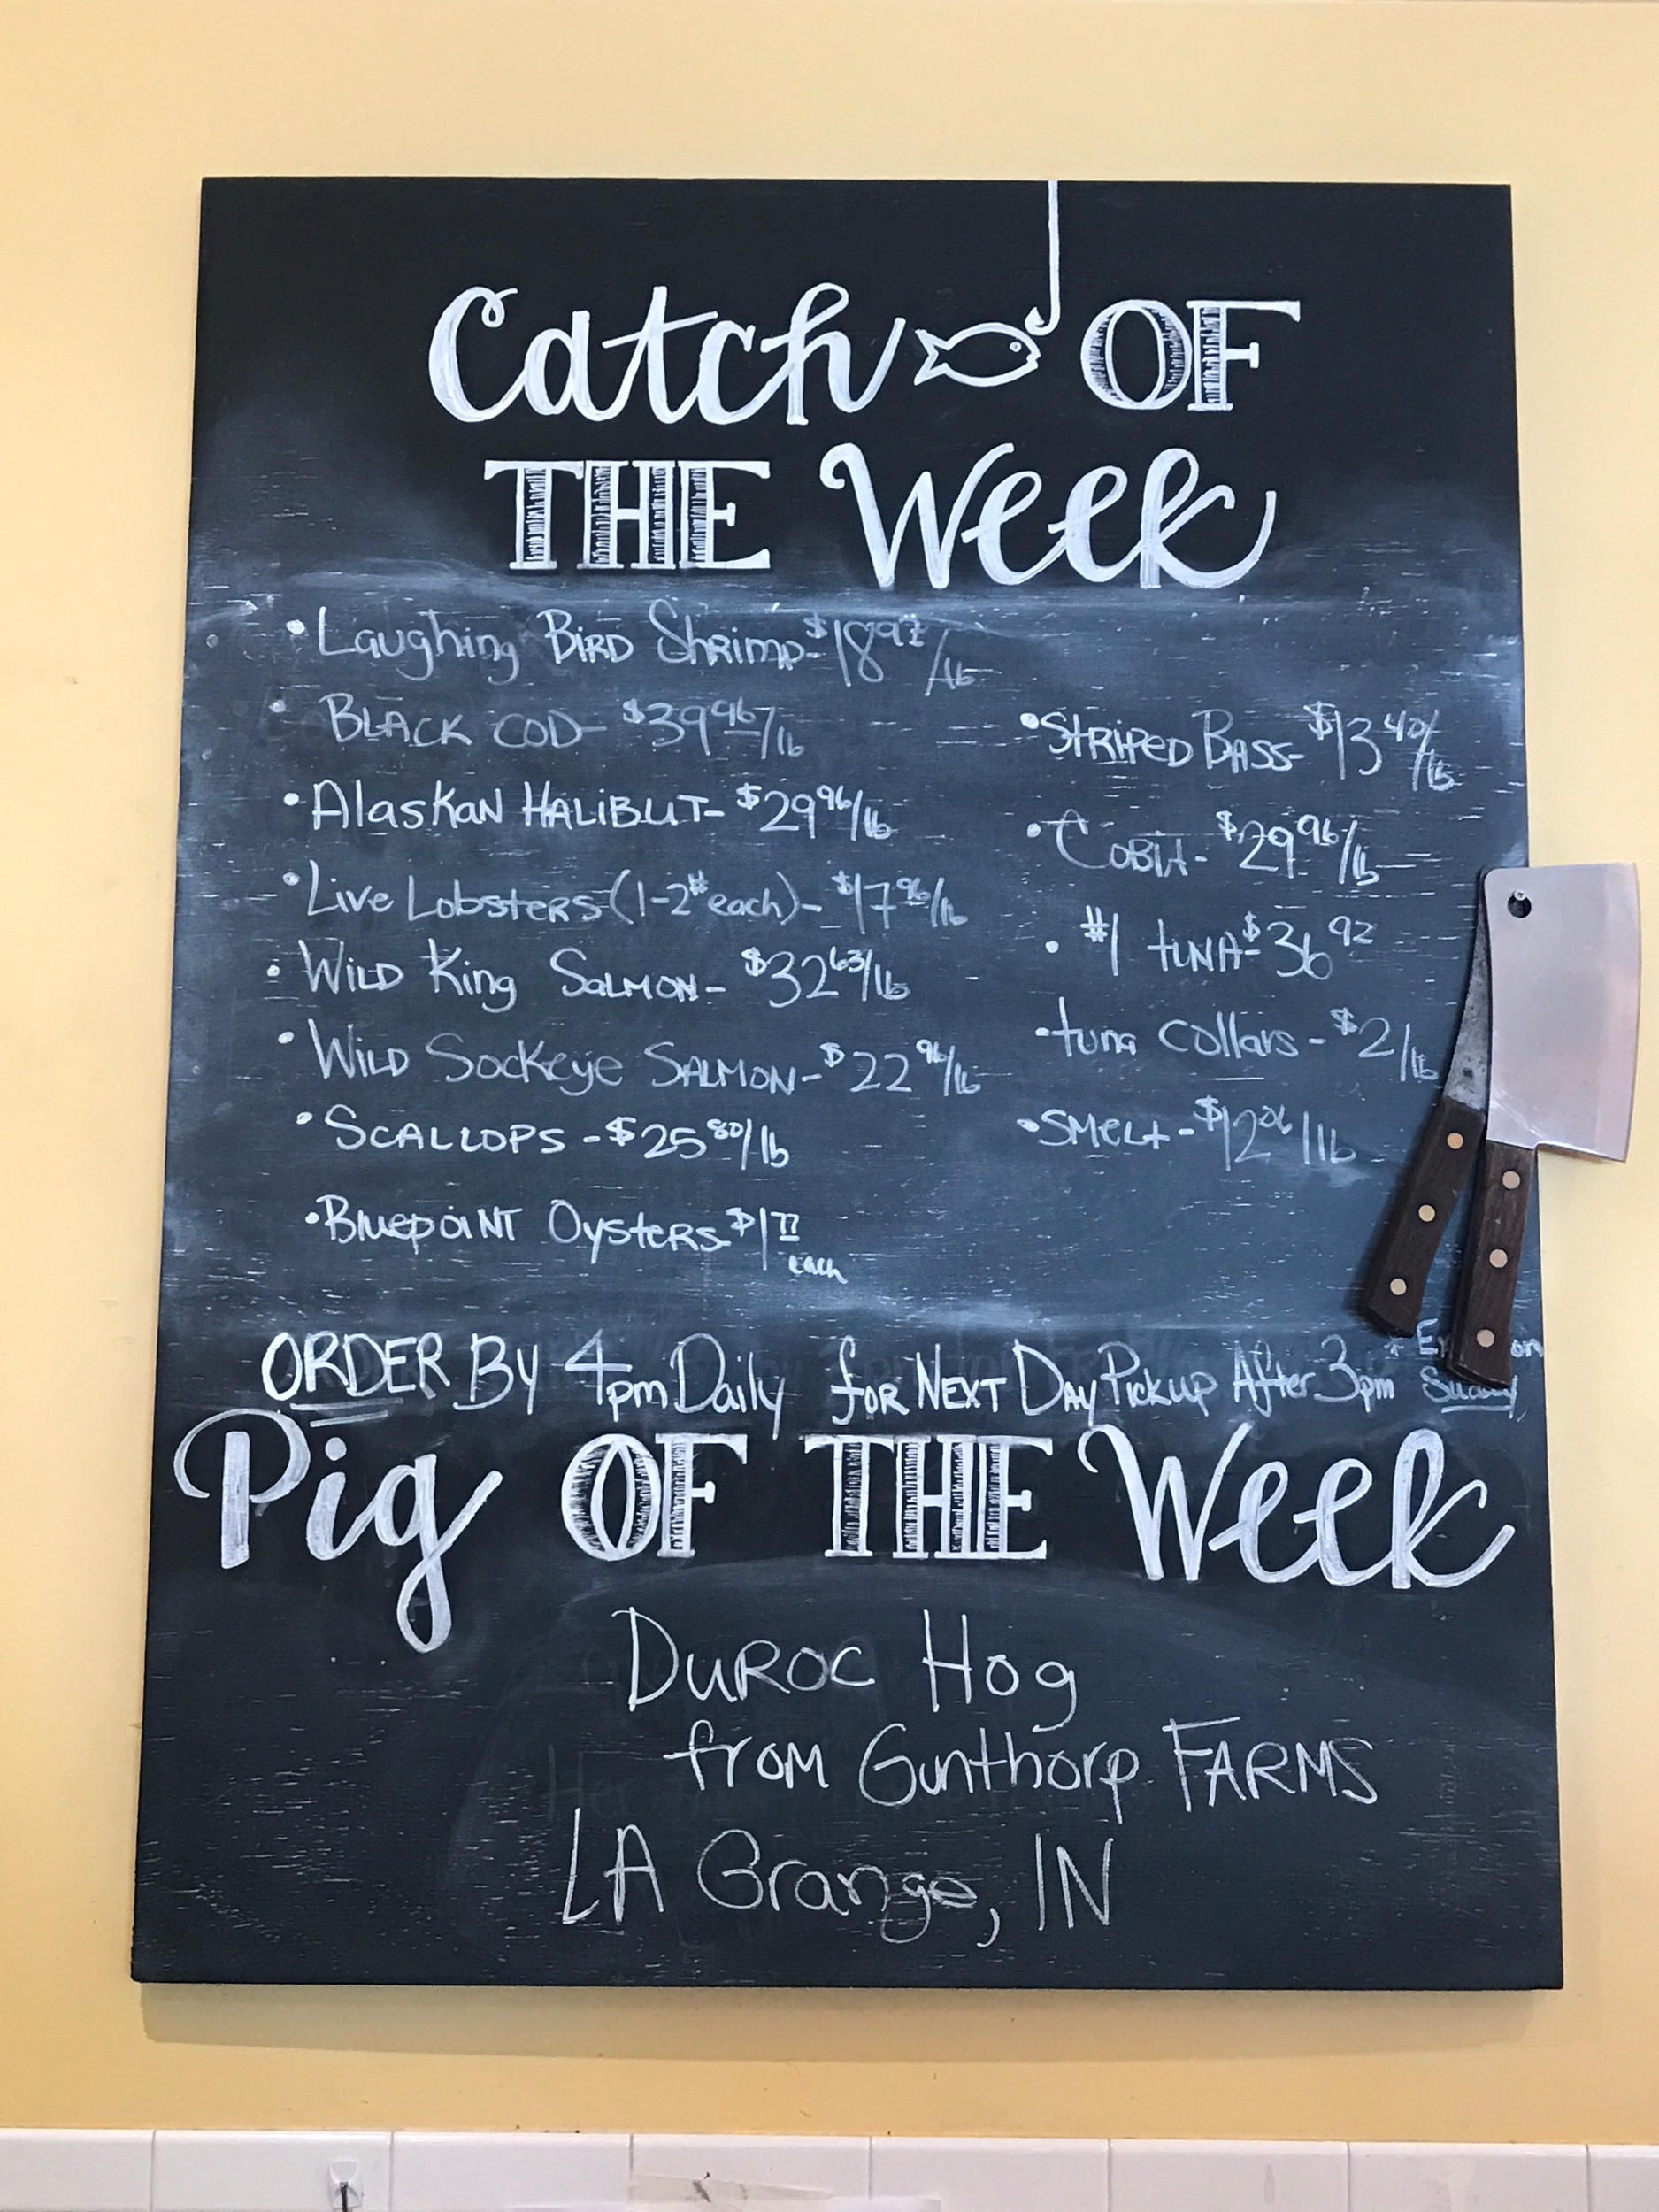 Catch OF
THE Week
• Laughing Bird Shrimp - $18.97/lb
• Black Cod - $39.96/lb
• Alaskan Halibut - $29.96/lb
• Live Lobsters (1-2# each) - $17.96/lb
• Wild King Salmon - $32.63/lb
• Wild Sockeye Salmon - $22.96/lb
• Scallops - $25.80/lb
• Bluepoint Oysters - $1.77 each
• Striped Bass - $13.40/lb
• Cobia - $29.96/lb
• #1 Tuna - $36.92
• tuna collars - $2/lb
• Smelt - $12.06/lb
ORDER By 4pm Daily for Next Day Pickup After 3pm *
Pig OF THE Week
Duroc Hog
from Gunthorp Farms
LA Grange, IN